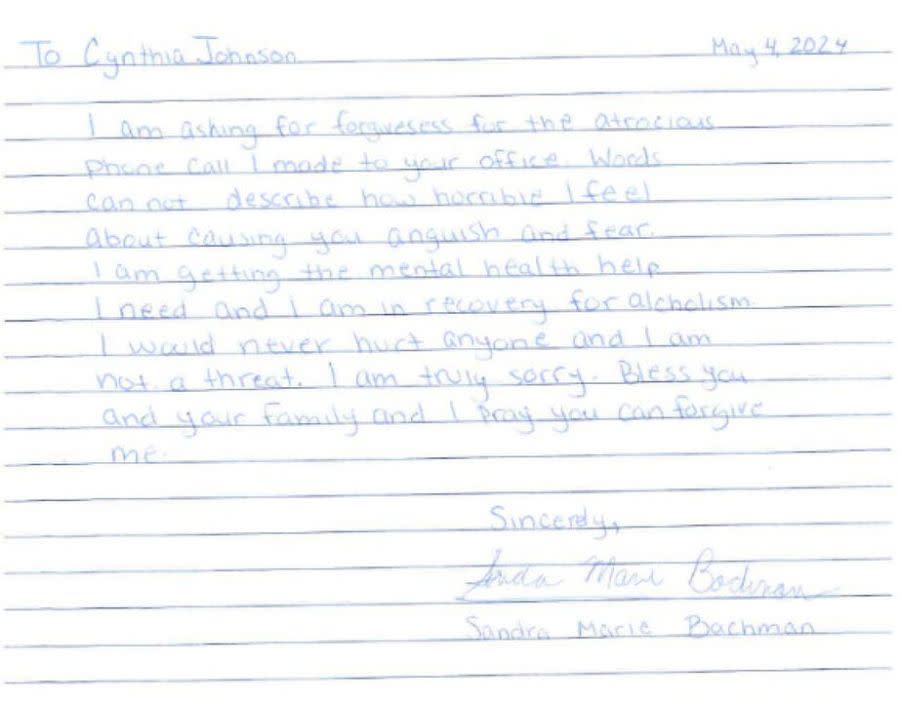 To Cynthia Johnson May 4, 2024
I am asking for forgivesess for the atrocious
phone call I made to your office. Words
can not describe how horrible I feel
about causing you anguish and fear.
I am getting the mental health help
I need and I am in recovery for alcholism.
I would never hurt anyone and I am
not a threat. I am truly sorry. Bless you
and your family and I pray you can forgive
me.
Sincerely,
Sandra Marie Bachman
Sandra Marie Bachman